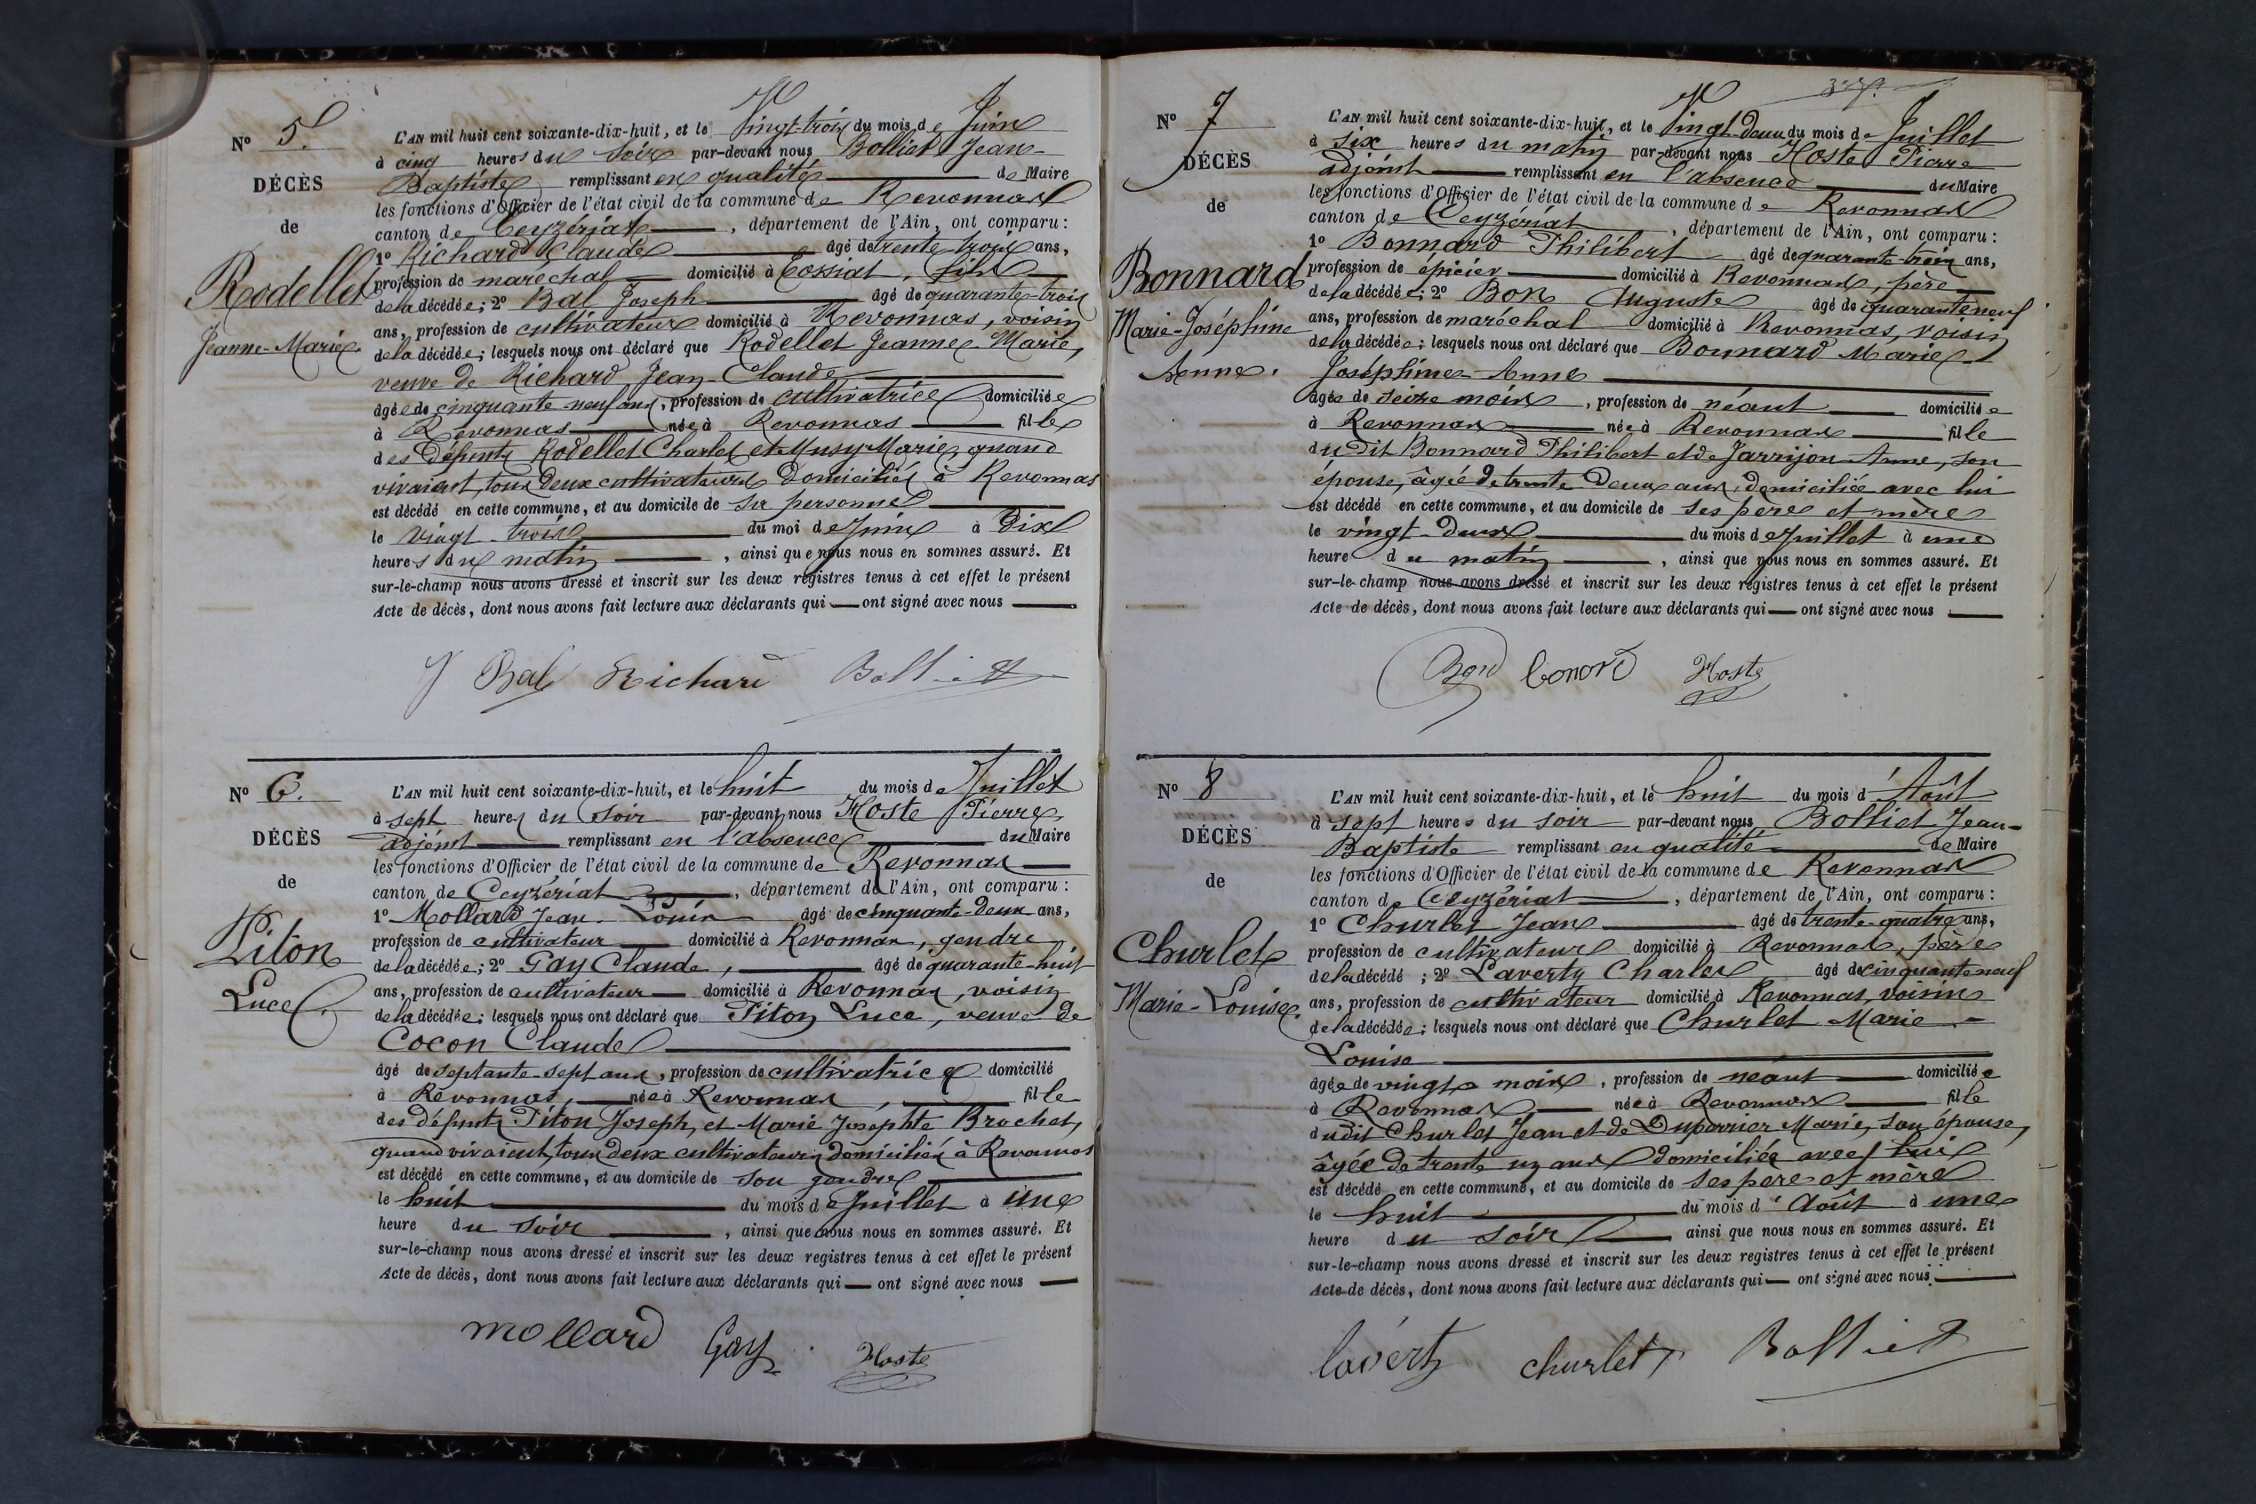 No 5.
DÉCÈS
de
Rodellet
Jeanne-Marie.
L'AN mil huit cent soixante-dix-huit, et le Vingt-trois du mois de Juin
à cinq heures du soir par-devant nous Bolliet Jean-
Baptiste remplissant en qualité de Maire
les fonctions d'Officier de l'état civil de la commune de Revonnas
canton de Ceyzériat, département de l'Ain, ont comparu :
1o Richard Claude âgé de trente-trois ans,
profession de maréchal domicilié à Tossiat, fils
de la décédée; 2o Bal Joseph âgé de quarante-trois
ans, profession de cultivateur domicilié à Revonnas, voisin
de la décédée; lesquels nous ont déclaré que Rodellet Jeanne Marie,
veuve de Richard Jean-Claude
âgée de cinquante neuf ans, profession de cultivatrice domiciliée
à Revonnas née à Revonnas fille
des défunts Rodellet Charles et Musy Marie, quand
vivaient, tous deux cultivateurs domiciliés à Revonnas
est décédé en cette commune, et au domicile de sa personne
le vingt-trois du moi de Juin à Dix
heures du matin, ainsi que nous nous en sommes assuré. Et
sur-le-champ nous avons dressé et inscrit sur les deux registres tenus à cet effet le présent
Acte de décès, dont nous avons fait lecture aux déclarants qui — ont signé avec nous
J Bal Richard Bolliet
No 6.
DÉCÈS
de
Piton
Luce.
L'AN mil huit cent soixante-dix-huit, et le huit du mois de Juillet
à sept heures du soir par-devant nous Hoste Pierre,
adjoint remplissant en l'absence du Maire
les fonctions d'Officier de l'état civil de la commune de Revonnas
canton de Ceyzériat, département de l'Ain, ont comparu :
1o Mollard Jean-Louis âgé de cinquante-deux ans,
profession de cultivateur domicilié à Revonnas, gendre
de la décédée; 2o Gay Claude, âgé de quarante-huit
ans, profession de cultivateur domicilié à Revonnas, voisin
de la décédée; lesquels nous ont déclaré que Piton Luce, veuve de
Cocon Claude
âgé de septante-sept ans, profession de cultivatrice domicilié
à Revonnas, née à Revonnas, fille
des défunts Piton Joseph, et Marie Josephte Brochet,
quand vivaient, tous deux cultivateurs domiciliés à Revonnas
est décédé en cette commune, et au domicile de son gendre
le huit du mois de Juillet à une
heure du soir, ainsi que nous nous en sommes assuré. Et
sur-le-champ nous avons dressé et inscrit sur les deux registres tenus à cet effet le présent
Acte de décès, dont nous avons fait lecture aux déclarants qui — ont signé avec nous
mollard Gay Hoste
No 7
DÉCÈS
de
Bonnard
Marie-Joséphine
Anne.
L'AN mil huit cent soixante-dix-huit, et le Vingt-deux du mois de Juillet
à six heures du matin par-devant nous Hoste Pierre
adjoint remplissant en l'absence du Maire
les fonctions d'Officier de l'état civil de la commune de Revonnas
canton de Ceyzériat, département de l'Ain, ont comparu :
1o Bonnard Philibert âgé de quarante-trois ans,
profession de épicier domicilié à Revonnas, père
de la décédée; 2o Bon Auguste âgé de quarante neuf
ans, profession de maréchal domicilié à Revonnas, voisin
de la décédée; lesquels nous ont déclaré que Bonnard Marie
Joséphine-Anne
âgée de seize mois, profession de néant domiciliée
à Revonnas née à Revonnas fille
dudit Bonnard Philibert et de Jarrijon Anne, son
épouse, âgée de trente deux ans, domiciliée avec lui
est décédé en cette commune, et au domicile de ses père et mère
le vingt-deux du mois de Juillet à une
heure du matin, ainsi que nous nous en sommes assuré. Et
sur-le-champ nous avons dressé et inscrit sur les deux registres tenus à cet effet le présent
Acte de décès, dont nous avons fait lecture aux déclarants qui — ont signé avec nous
Bon bonord Hoste
No 8
DÉCÈS
de
Churlet
Marie-Louise.
L'AN mil huit cent soixante-dix-huit, et le huit du mois d'Août
à sept heures du soir par-devant nous Bolliet Jean-
Baptiste remplissant en qualité de Maire
les fonctions d'Officier de l'état civil de la commune de Revonnas
canton de Ceyzériat, département de l'Ain, ont comparu :
1o Churlet Jean âgé de trente-quatre ans,
profession de cultivateur domicilié à Revonnas, père
de la décédé; 2o Laverty Charles âgé de cinquante neuf
ans, profession de cultivateur domicilié à Revonnas, voisin
de la décédée; lesquels nous ont déclaré que Churlet Marie-
Louise
âgée de vingt mois, profession de néant domiciliée
à Revonnas, née à Revonnas fille
dudit Churlet Jean et de Duperrier Marie, son épouse,
âgée de trente un ans domiciliée avec lui
est décédé en cette commune, et au domicile de ses père et mère
le huit du mois d'Août à une
heure du soir ainsi que nous nous en sommes assuré. Et
sur-le-champ nous avons dressé et inscrit sur les deux registres tenus à cet effet le présent
Acte de décès, dont nous avons fait lecture aux déclarants qui — ont signé avec nous
lavérty churlet Bolliet